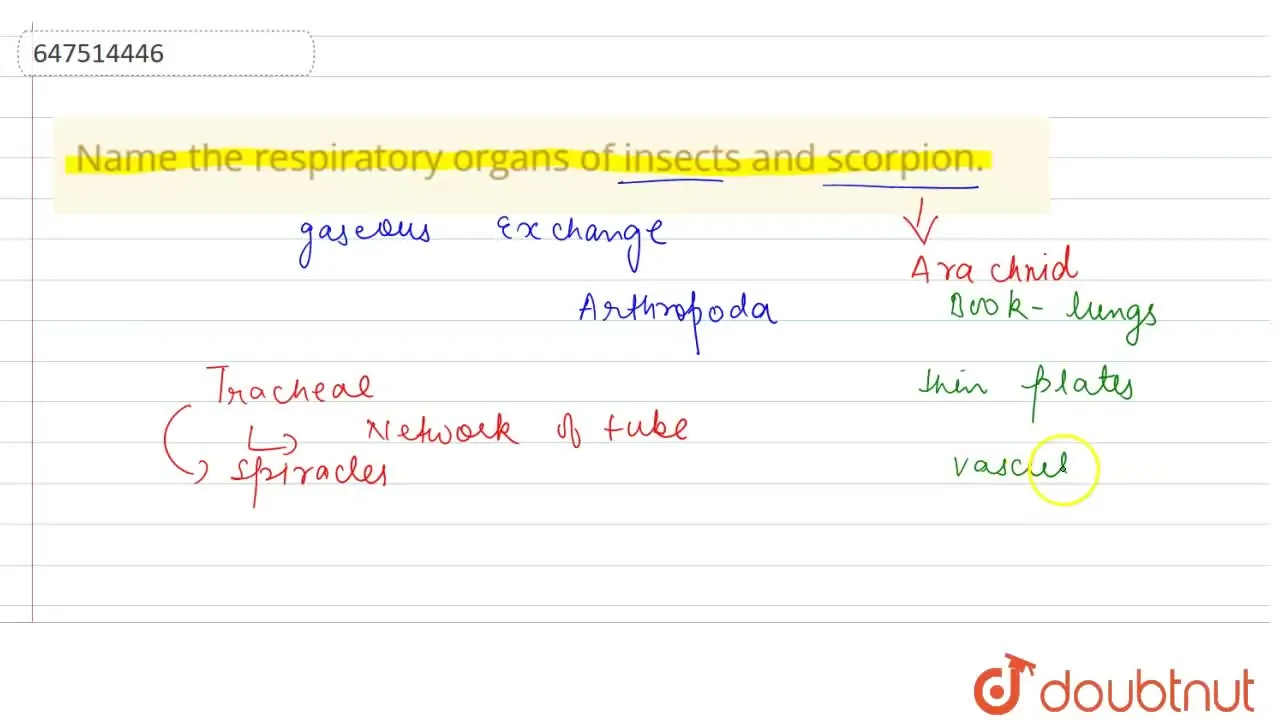 647514446
Name the respiratory organs of insects and scorpion.
gaseous Exchange
Arachnid
Arthropoda
Book-lungs
Tracheal
thin plates
Network of tube
spiracles
vascul
doubtnut